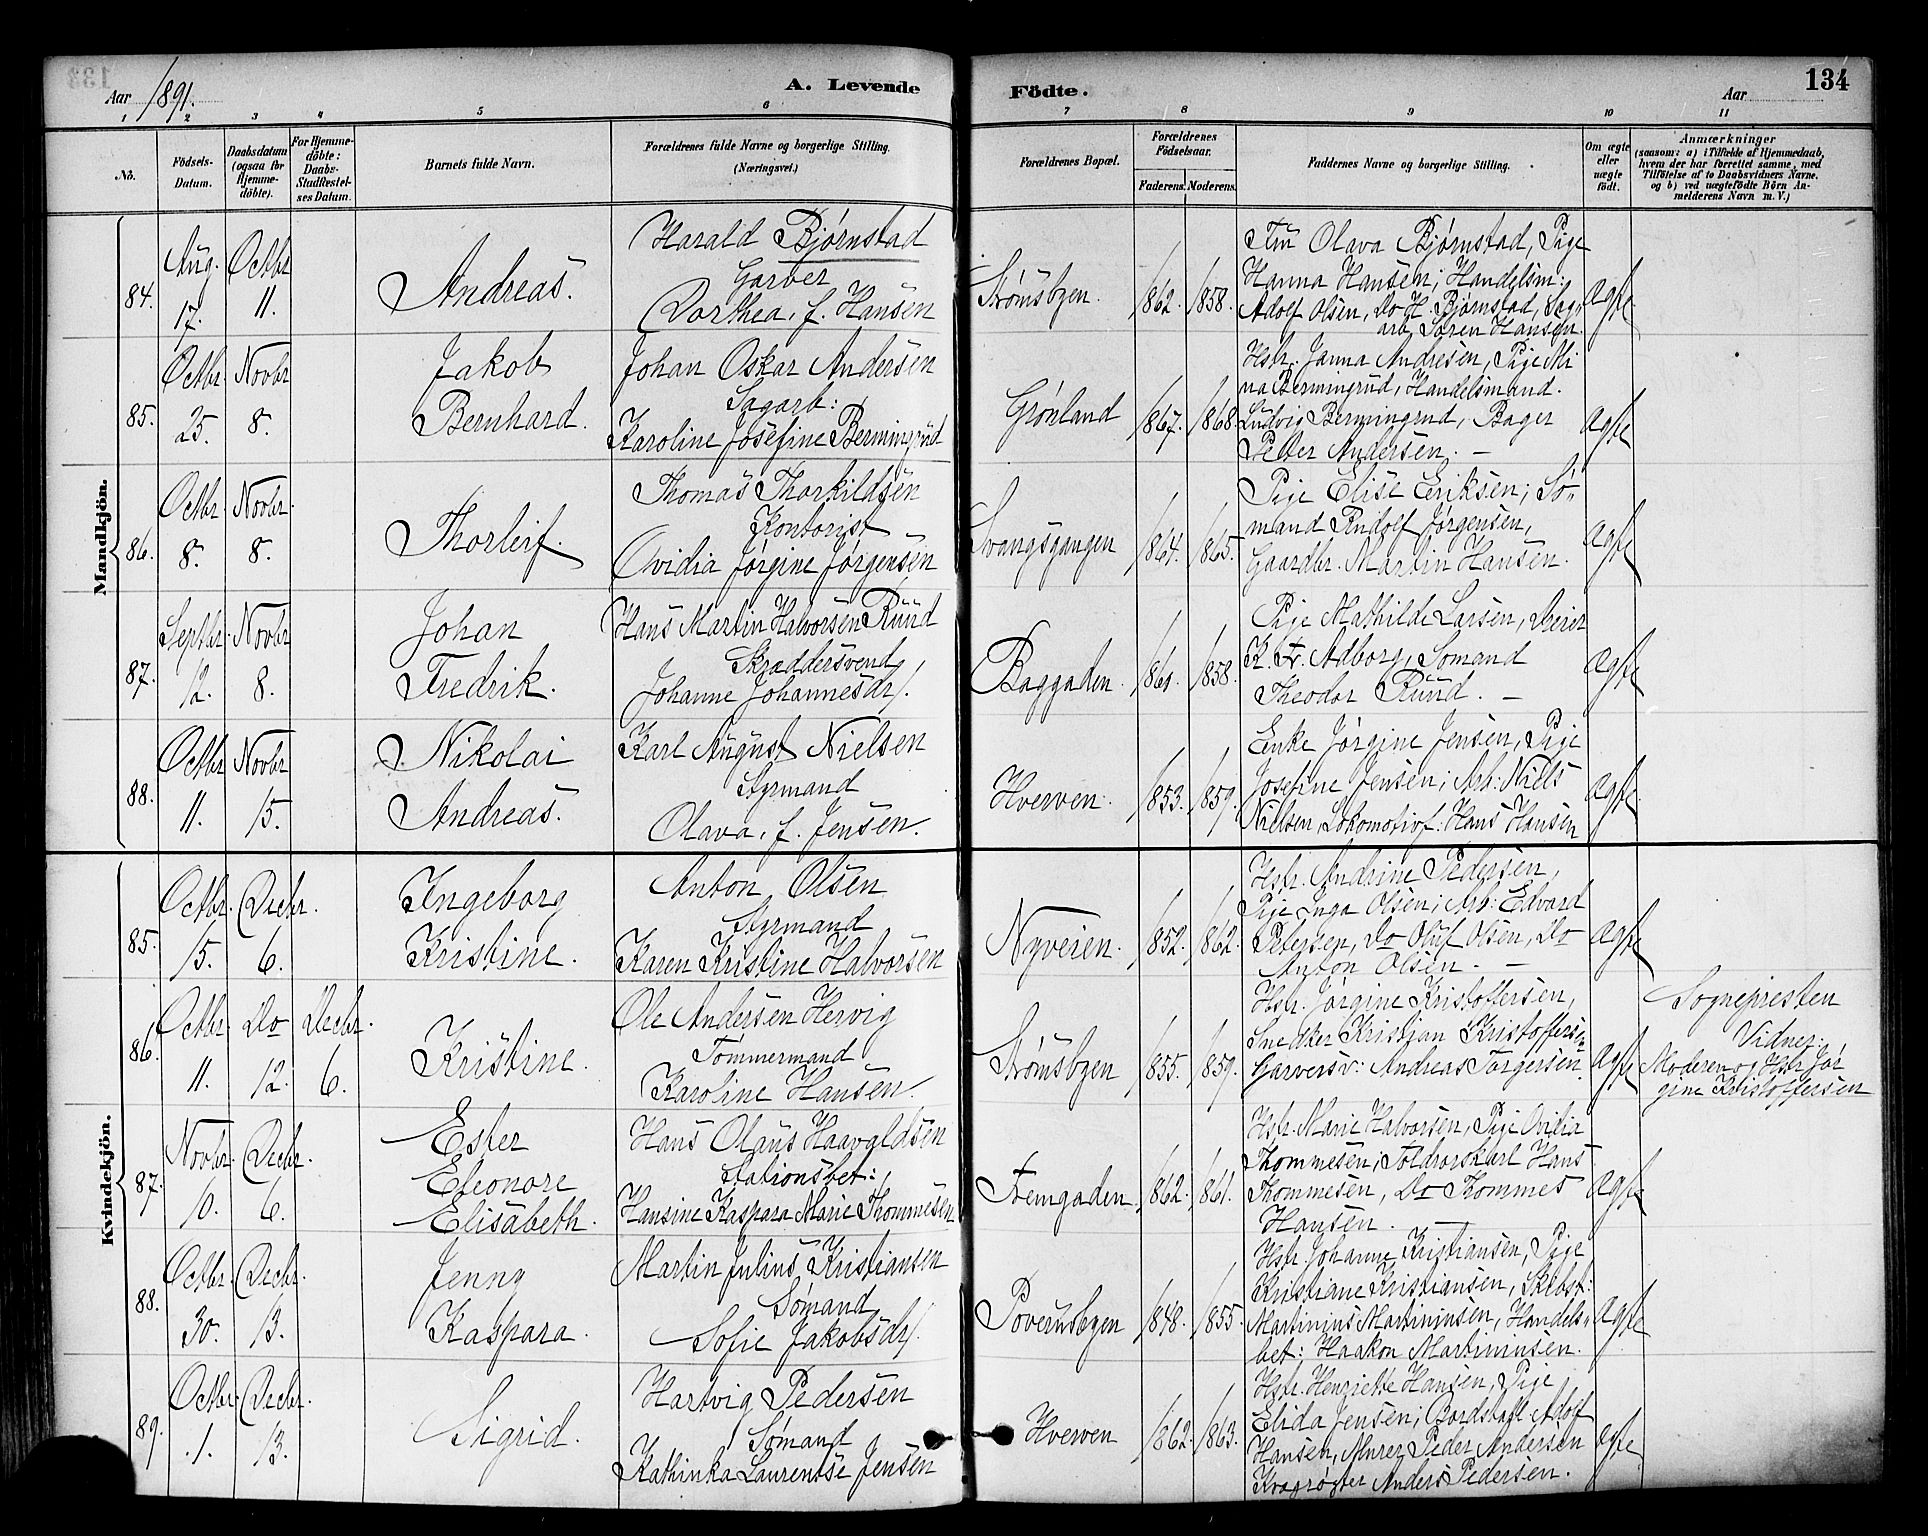 Aar 1891.
A. Levende Födte.
Aar
134
1 2 3 4 5 6 7 8 9 10 11
No.
Födsels-Datum.
Daabsdatum (ogsaa for Hjemmedöbte).
For Hjemmedöbte: Daabs-Stadfæstelses Datum.
Barnets fulde Navn.
Forældrenes fulde Navne og borgerlige Stilling. (Næringsvei.)
Forældrenes Bopæl.
Forældrenes Födselsaar.
Faderens. Moderens.
Faddernes Navne og borgerlige Stilling.
Om ægte eller uægte födt.
Anmærkninger
(saasom: a) i Tilfælde af Hjemmedaab, hvem der har forrettet samme, med Tilföielse af to Daabsvidners Navne. og b) ved uægtefödte Börn Anmelderens Navn m. V.)
Mandkjön.
84.
Aug. 17.
Octbr 11.
Andreas.
Harald Bjørnstad
Garver
Dorthea, f. Hansen
Strømsbyen.
1862. 1858.
Fru Olava Bjørnstad, Pige
Hanna Hansen; Handelsm:
Adolf Olsen, Do H. Bjørnstad, Sag-
arb. Søren Hansen.
ægte
85.
Octbr 25.
Novbr 8.
Jakob
Bernhard.
Johan Oskar Andersen
Sagarb:
Karoline Josefine Bermingrud
Grønland
1867. 1868.
Hstr. Janna Andresen, Pige Mi
na Bermingrud, Handelsmand.
Ludvig Bermingrud, Bager
Petter Andersen. —
ægte
86.
Octbr. 8.
Novbr. 8.
Thorleif.
Thomas Thorkildsen
Kontorist
Ovidia Jørgine Jørgensen
Svangsgangen
1864. 1865.
Pige Elise Eriksen; Sö-
mand Rudolf Jørgensen,
Gaardbr. Martin Hansen.
ægte
87.
Septbr. 12.
Novbr 8.
Johan
Fredrik.
Hans Martin Halvorsen Ruud
Skræddersvend
Johanne Johannesdr.
Baggaden.
1861. 1858.
Pige Mathilde Larsen, Veier
K. Fr. Adborg, Sömand
Theodor Ruud. —
ægte
88.
Octbr 11.
Novbr 15.
Nikolai
Andreas.
Karl August Nielsen
Styrmand
Olava, f. Jensen.
Hverven.
1853. 1859.
Enke Jørgine Jensen, Pige
Josefine Jensen; Arb: Niels
Nielsen, Lokomotivf: Hans Hansen
ægte
Kvindekjön.
85.
Octbr. 15.
Decbr. 6.
Ingeborg
Kristine.
Anton Olsen
Styrmand
Karen Kristine Halvorsen
Nyveien.
1852. 1862.
Hstr. Andrine Pedersen,
Pige Inga Olsen; Arb: Edvard
Petersen, Do Oluf Olsen, Do
Anton Olsen. —
ægte
86.
Octbr. 11.
Do 12.
Decbr. 6.
Kristine.
Ole Andersen Hervig
Tömmermand
Karoline Hansen.
Strømsbyen
1855. 1859.
Hstr. Jørgine Kristoffersen,
Snedker Kristjan Kristoffersen
Garversv: Andreas Torgersen.
ægte
Sognepresten
Vidner:
Moderen og Hstr Jör
gine Kristoffersen
87.
Novbr. 10.
Decbr. 6.
Ester
Eleonore
Elisabeth.
Hans Olaus Haavaldsen
Stationsbet:
Hansine Kaspara Marie Thommesen
Fremgaden.
1862. 1861.
Hstr. Marie Halvorsen, Pige Ovidia
Thommesen; Toldrorskarl Hans
Thommesen, Do Thommes
Hansen.
ægte
88.
Octbr. 30.
Decbr. 13.
Jenny
Kaspara.
Martin Julius Kristiansen
Sömand
Sofie Jakobsdr.
Povernsbyen
1848. 1855.
Hstr. Johanne Kristiansen, Pige
Kristiane Kristiansen, Skibst:
Martinius Martiniusen, Handels-
bet: Haakon Martiniusen.
ægte
89.
Octbr. 1.
Decbr. 13.
Sigrid.
Hartvig Pedersen
Sömand
Kathinka Laurentse Jensen
Hverven
1862. 1863.
Hstr. Henriette Hansen, Pige
Elida Jensen; Bordstabl. Adolf
Hansen, Murer Peder Andersen
Anders Pedersen.
ægte